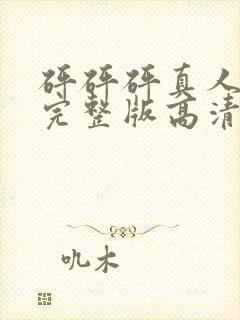 砰砰砰真人
完整版高清
叽木